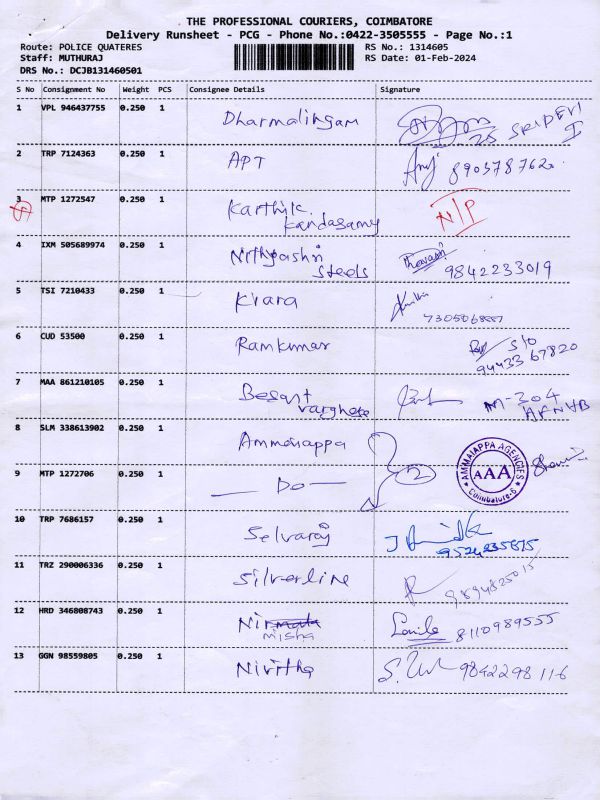 THE PROFESSIONAL COURIERS, COIMBATORE
Delivery Runsheet - PCG - Phone No.:0422-3505555 - Page No.:1
Route: POLICE QUATERES RS No.: 1314605
Staff: MUTHURAJ RS Date: 01-Feb-2024
DRS No.: DCJB131460501
S No Consignment No Weight PCS Consignee Details Signature
1 VPL 946437755 0.250 1 Dharmalingam 25 SRIDEVI
2 TRP 7124363 0.250 1 APT
3 MTP 1272547 0.250 1 Karthik N/P
kandasamy
4 IXM 505689974 0.250 1 Nithyashri 9842233019
steels
5 TSI 7210433 0.250 1 Kiara
6 CUD 53500 0.250 1 Ramkumar S/O
94433 67820
7 MAA 861210105 0.250 1 Besant M-304
varghese
8 SLM 338613902 0.250 1 Ammaiappa
AMMAIAPPA AGENCIES
AAA
Coimbatore-6
9 MTP 1272706 0.250 1 — Do — 2
10 TRP 7686157 0.250 1 Selvaraj
11 TRZ 290006336 0.250 1 Silverline 9894825015
12 HRD 346808743 0.250 1 Nirmala 8110989555
misha
13 GGN 98559805 0.250 1 Nivitha 9842298116